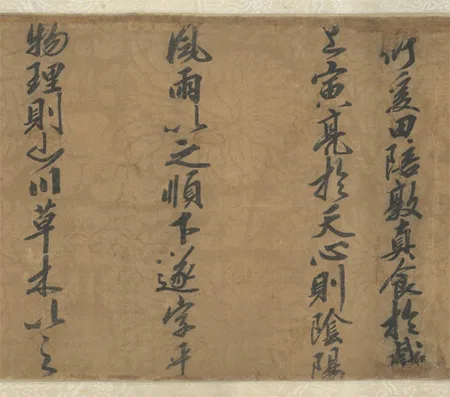 衍爰田陪敦真食於戲
上寅亮於天心則陰陽
風雨以之順下遂字乎
物理則山川草木以之